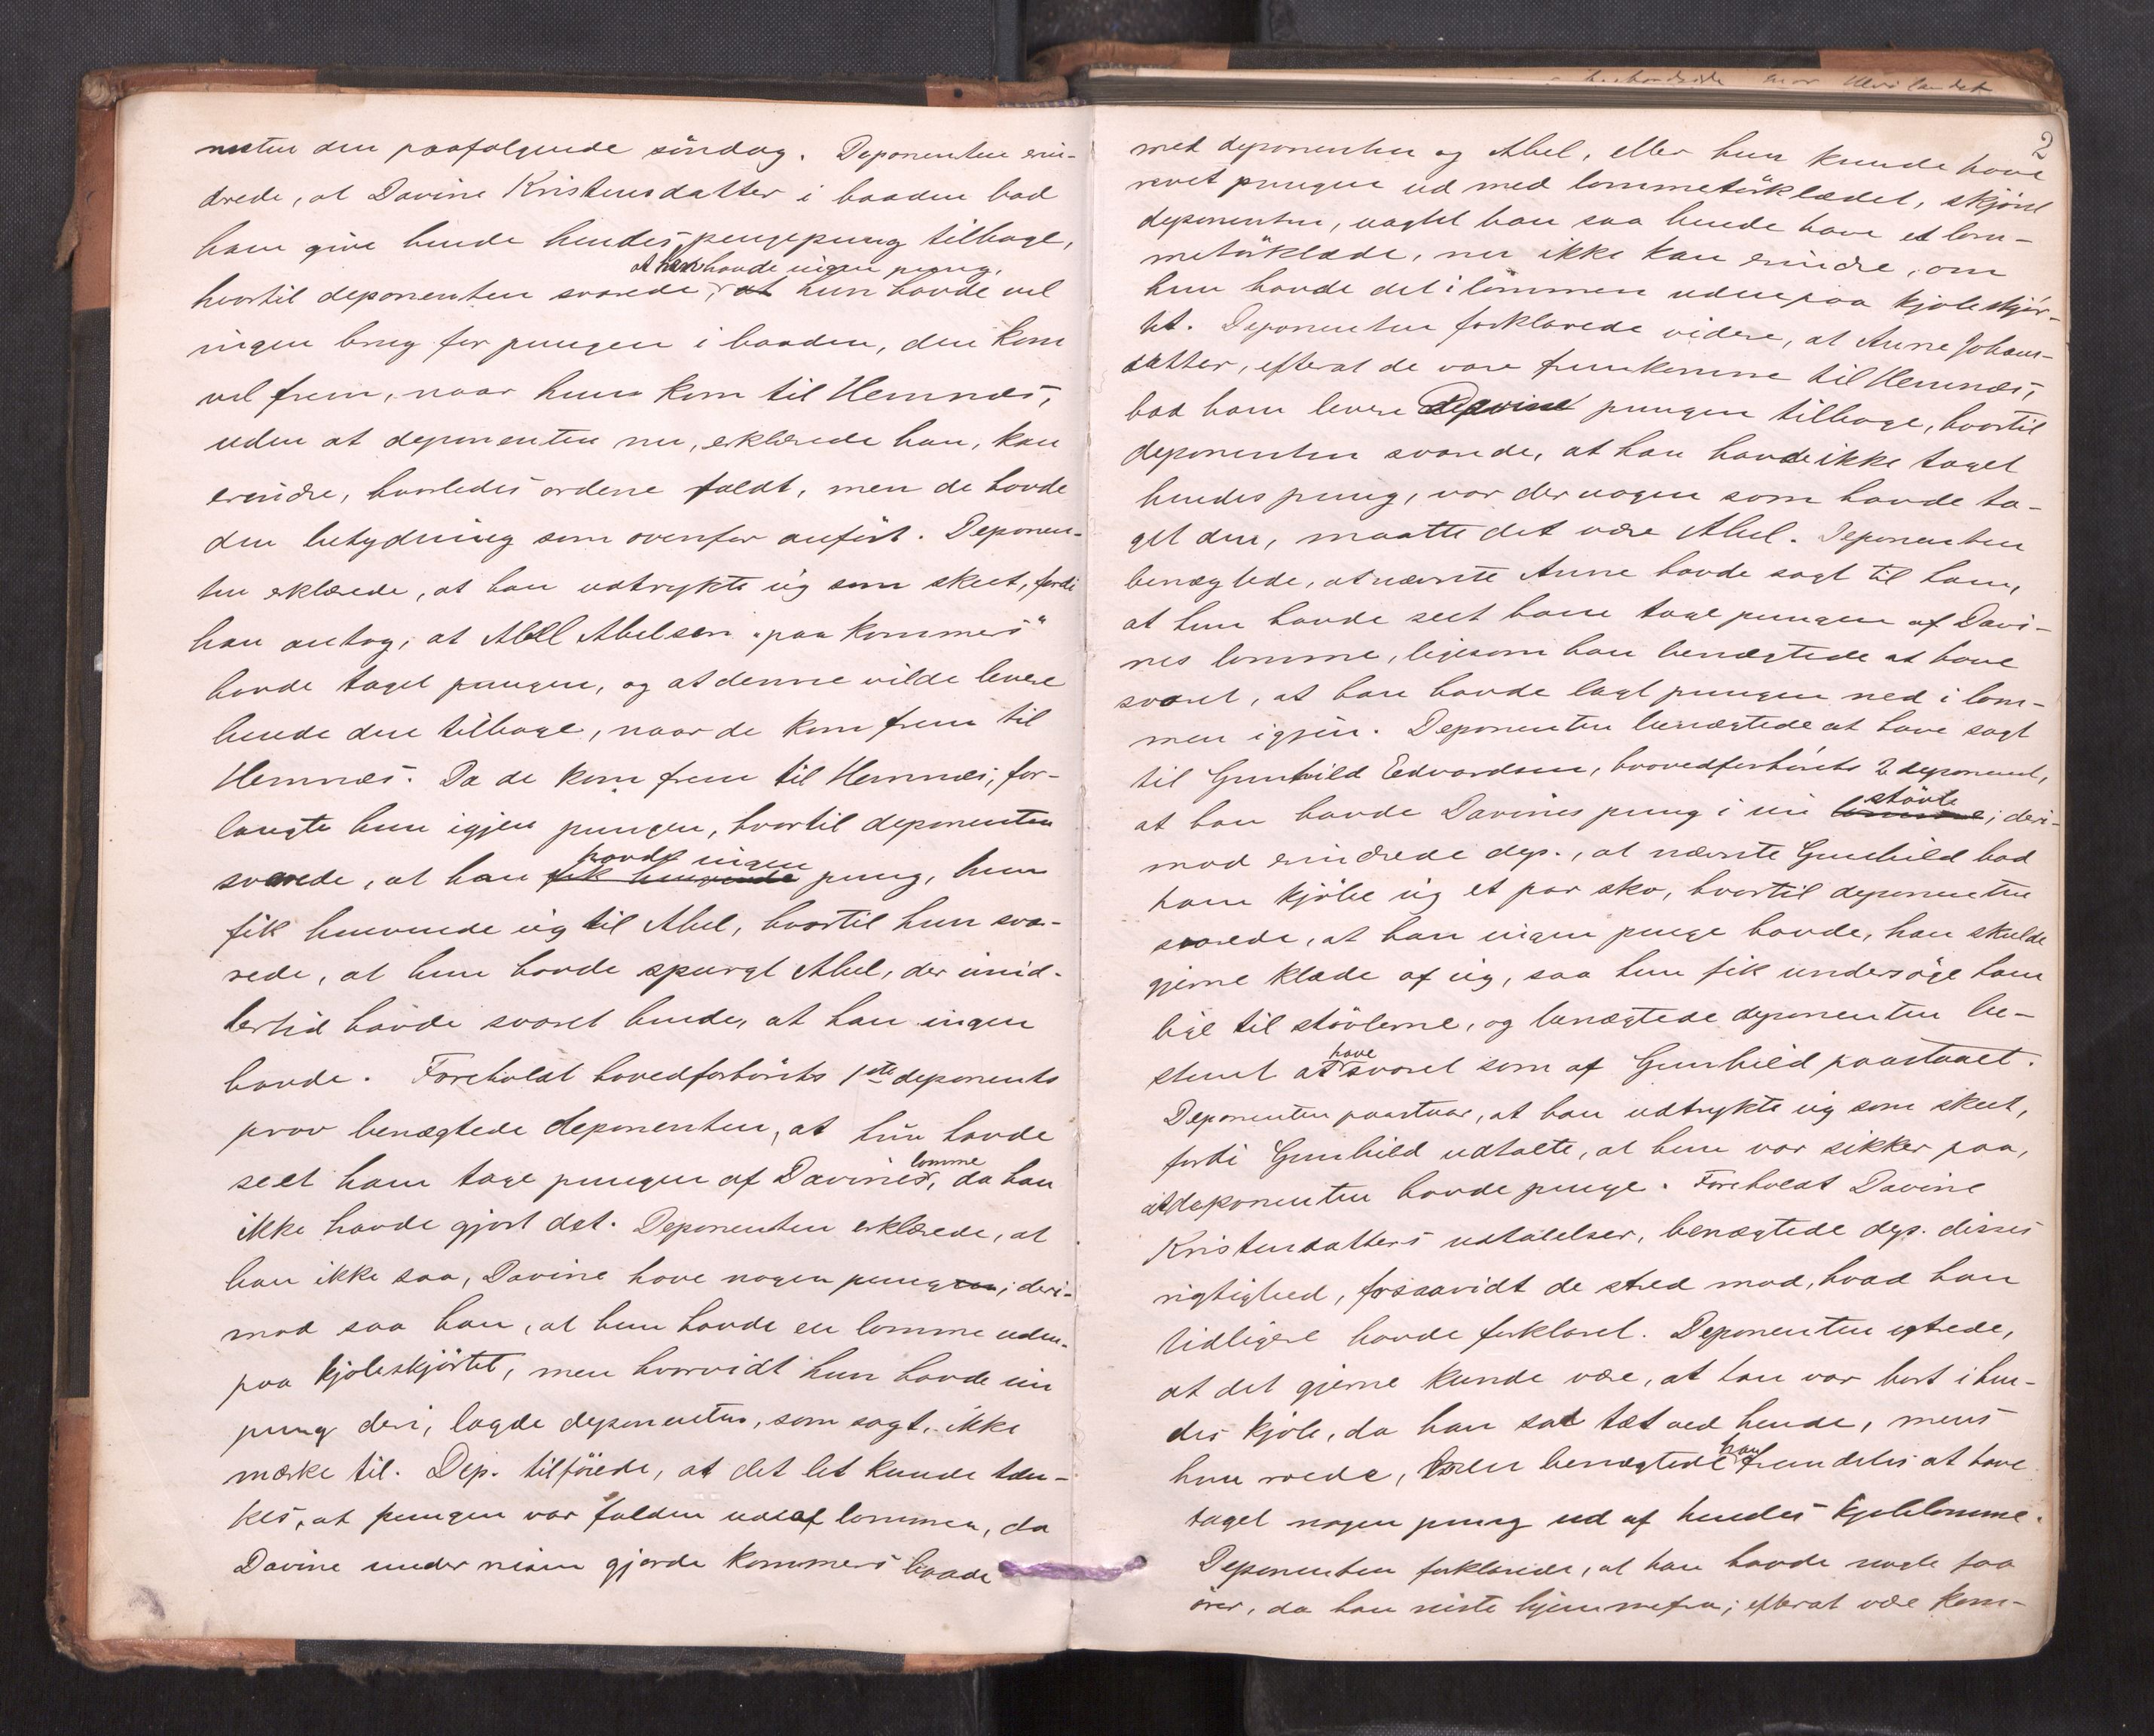 den paafølgende søndag. Deponenten erin-
drede, at Davine Kristensdatter i baaden bad
ham give hende hendes pengepung tilbage,
at han havde ingen pung,
hvortil deponenten svarede, at hun havde vel
ingen brug for pungen i baaden, den kom
vel frem, naar hun kom til Hemnæs,
uden at deponenten nu, erklærede han, kan
erindre, hvorledes ordene faldt, men de havde
den betydning som ovenfor anført. Deponen-
ten erklærede, at han udtrykte sig som skeet, fordi
han antog, at Abel Abelsen "paa kommers"
havde taget pungen, og at denne vilde levere
hende den tilbage, naar de kom frem til
Hemnæs. Da de kom frem til Hemnæs, for-
langte hun igjen pungen, hvortil deponenten
havde ingen
svarede, at han fik henvende pung, hun
fik henvende sig til Abel, hvortil hun sva-
rede, at hun havde spurgt Abel, der imid-
lertid havde svaret hende, at han ingen
havde. Foreholdt hovedforhørets 1ste deponents
prov benægtede deponenten, at hun havde
lomme
seet ham tage pungen af Davines, da han
ikke havde gjort det. Deponenten erklærede, at
han ikke saa, Davine have nogen pung; deri-
mod saa han, at hun havde en lomme uden-
paa kjoleskjørtet, men hvorvidt hun havde sin
pung deri, lagde deponenten, som sagt, ikke
mærke til. Dep. tilføiede, at det let kunde tæn-
kes, at pungen var falden ud af lommen, da
Davine under reisen gjorde kommers baade
2
med deponenten og Abel, eller hun kunde have
revet pungen ud med lommetørklædet, skjønt
deponenten, uagtet han saa hende have et lom-
metørklæde, nu ikke kan erindre, om
hun havde det i lommen udenpaa kjoleskjør-
tet. Deponenten forklarede videre, at Anne Johans-
datter, efterat de vare fremkomne til Hemnæs,
bad ham levere Davine pungen tilbage, hvortil
deponenten svarede, at han havde ikke taget
hendes pung, var der nogen som havde ta-
get den, maatte det være Abel. Deponenten
benægtede, at nævnte Anne havde sagt til ham,
at hun havde seet ham tage pungen af Davi-
nes lomme, ligesom han benægtede at have
svaret, at han havde lagt pungen ned i lom-
men igjen. Deponenten benægtede at have sagt
til Gunhild Edvardsen, hovedforhørets 2 deponent,
støvle
at han havde Davines pung i sin lomme; deri-
mod erindrede dep., at nævnte Gunhild bad
ham kjøbe sig et par sko, hvortil deponenten
svarede, at han ingen penge havde, han skulde
gjerne klæde af sig, saa hun fik undersøge ham
lige til støvlerne, og benægtede deponenten be-
have
stemt at svaret som af Gunhild paastaaet.
Deponenten paastaar, at han udtrykte sig som skeet,
fordi Gunhild udtalte, at hun var sikker paa,
at deponenten havde penge. Foreholdt Davine
Kristensdatters udtalelser, benægtede dep. disses
rigtighed, forsaavidt de stred mod, hvad han
tidligere havde forklaret. Deponenten ytrede,
at det gjerne kunde være, at han var bort i hen-
des kjole, da han sad tæt ved hende, mens
han
hun roede, men benægtede fremdeles at have
taget nogen pung ud af hendes kjolelomme.
Deponenten forklarede, at han havde nogle faa
ører, da han reiste hjemmefra; efterat være kom-